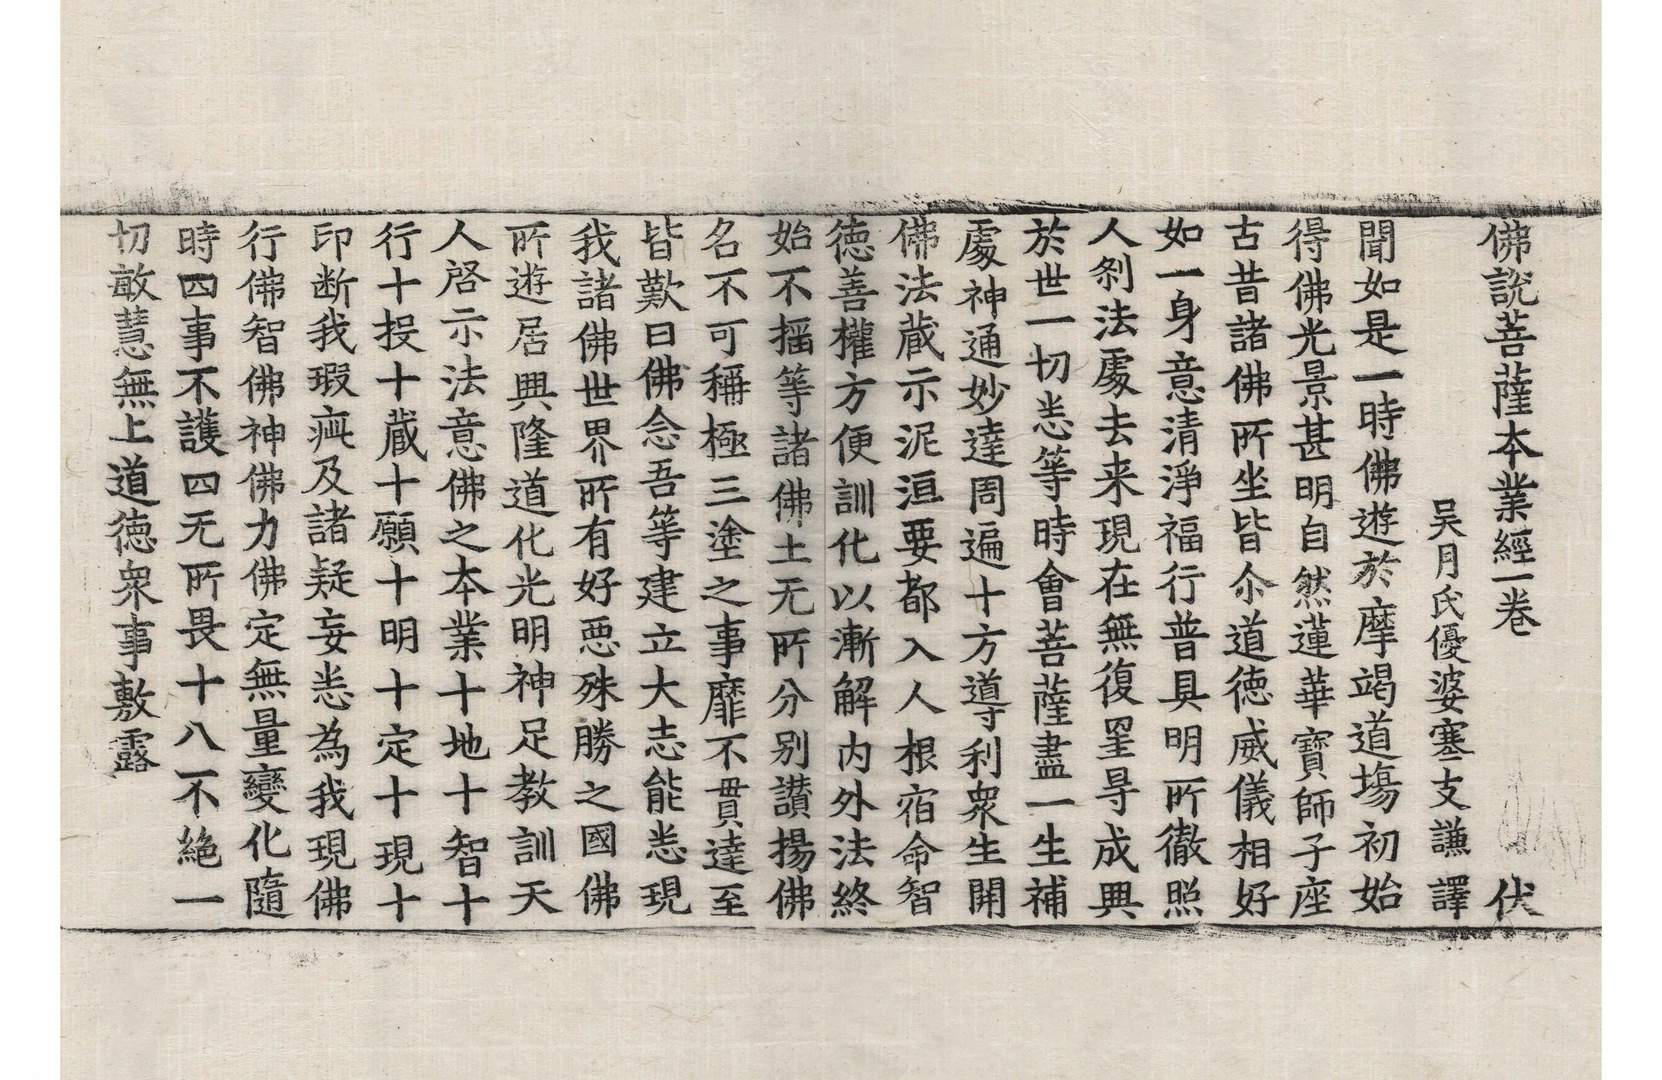 佛說菩薩本業經一卷 伏
吳月氏優婆塞支謙譯
聞如是一時佛遊於摩竭道場初始
得佛光景甚明自然蓮華寶師子座
古昔諸佛所坐皆尒道德威儀相好
如一身意清淨福行普具明所徹照
人剎法處去来現在無復罣㝵成興
於世一切恙等時會菩薩盡一生補
處神通妙達周遍十方導利衆生開
佛法蔵示泥洹要都入人根宿命智
德善權方便訓化以漸解內外法終
始不揺等諸佛土无所分別讃揚佛
名不可稱極三塗之事靡不貫達至
皆歎曰佛念吾等建立大志能悉現
我諸佛世界所有好惡殊勝之國佛
所遊居興隆道化光明神足教訓天
人啓示法意佛之本業十地十智十
行十投十蔵十願十明十定十現十
印断我瑕疵及諸疑妄悉為我現佛
行佛智佛神佛力佛定無量變化隨
時四事不護四无所畏十八不絕一
切敏慧無上道德衆事敷露